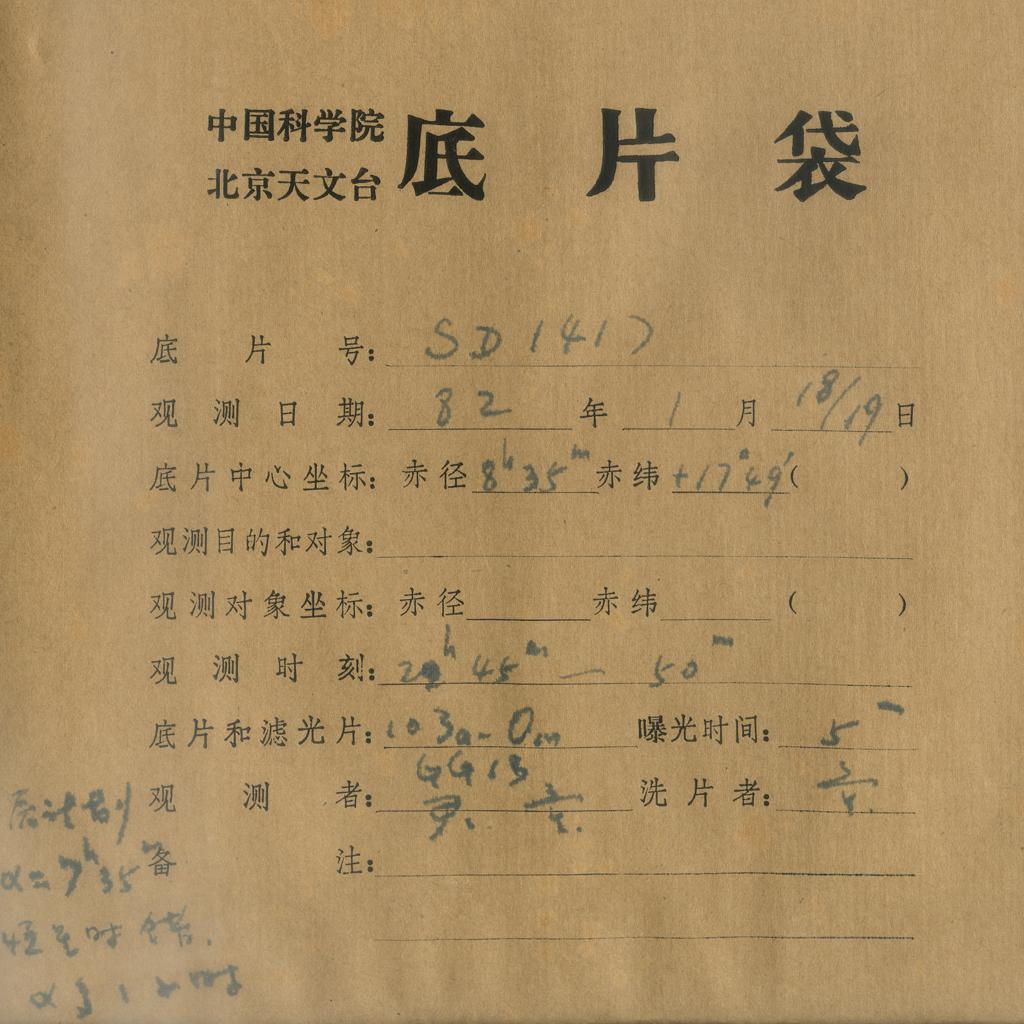 中国科学院
北京天文台
底片袋
底片号: SD1417
观测日期: 82年 1月 18/19日
底片中心坐标: 赤径 8h35m 赤纬 +17°49′( )
观测目的和对象:
观测对象坐标: 赤径 赤纬 ( )
观测时刻: 45m — 50m
底片和滤光片: 103a-Om 曝光时间: 5m
GG13
观测者: 洗片者:
备注:
原计划
α=7h35m
恒星时错.
α 1小时